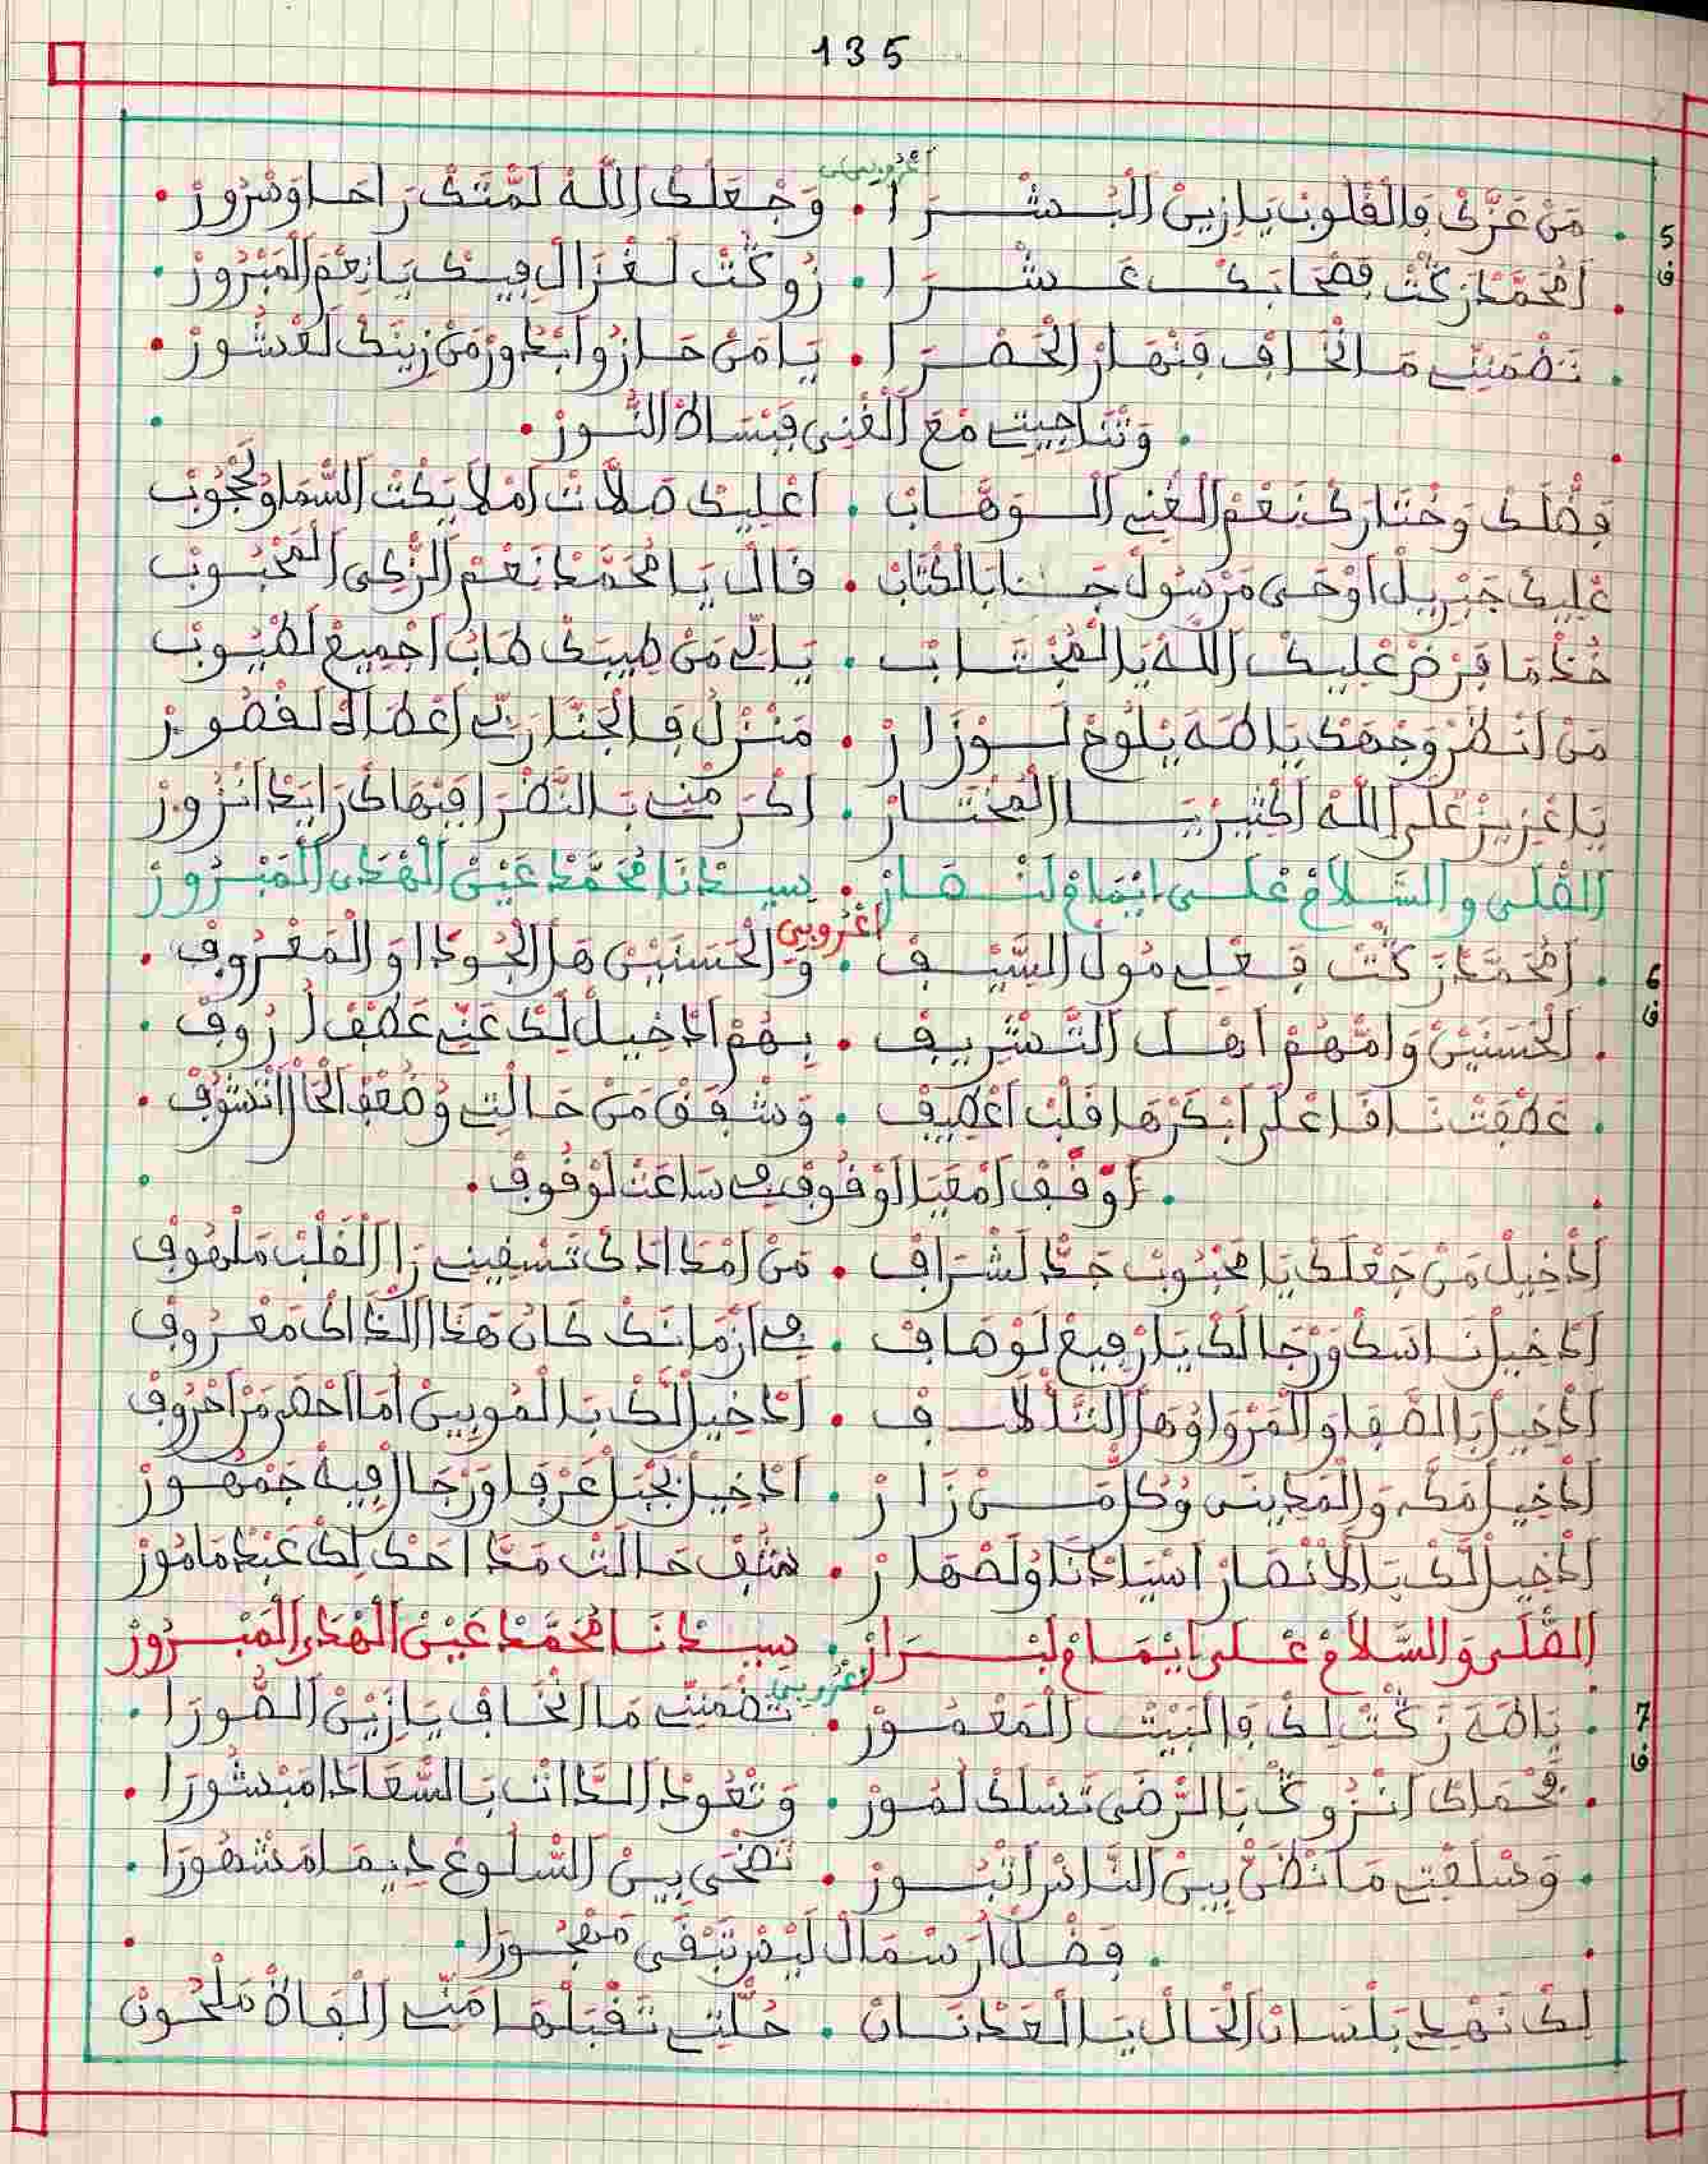 135
اغروبي
5 ف . مَنْ عَزَّكْ فَالْقْلُوبْ يَا زِينْ الْبُشْرَا . وَجْعَلْكْ اللَّهْ لَمَّتَكْ رَاحَا وَسْرُورْ .
. أَمُحَمَّدْ زَكْتْ فِصْحَابَكْ عَشْرَا . زُوكْتْ لَغْزَالْ فِيكْ يَا نِعْمَ الْمَبْرُورْ .
. تَضْمَنِّي مَا نْخَافْ فِنْهَارْ الْحَضْرَا . يَا مَنْ حَازُوا بْدُورْ مَنْ زِينَكْ لَعْشُورْ .
. وَتْنَاجِيتِ مْعَ الْغْنِي فِبْسَاطْ النُّورْ .
فِضْلَكْ وَخْتَارَكْ نَعْمْ الْغْنِي الْوَهَّابْ . اعْلِيكْ صَلَّاتْ امْلَايَكْتْ السَّمَا وُلَحْجُوبْ
عْلِيكْ جَبْرِيلْ أَوْحَى مَرْسُولْ جَا بَالْكْتَابْ . قَالْ يَا مُحَمَّدْ نَعْمْ الزّْكِي الْمَحْبُوبْ
خُذْ مَا فْرَضْ عْلِيكْ اللَّهْ يَا الْمُجْتَابْ . يَا لِّي مَنْ طِيبَكْ طَابْ اجْمِيعْ لَطْيُوبْ
مَنْ انْظَرْ وَجْهَكْ يَا طَهَ يْلُوحْ لَوْزَارْ . مَنْزَلْ فَالْجَنَّا رَبِّي اعْطَاهْ لَقْصُورْ
يَا عْزِيزْ عْلَى اللَّهْ اكْتِيرْ يَا الْمُخْتَارْ . اكْرَمْنِي بَالنَّظْرَا فِبْهَاكْ رَايَدْ انْزُورْ
الصّْلَى و السَّلَامْ عْلَى ايْمَامْ لَنْهَارْ . سِيدْنَا مُحَمَّدْ عَيْنْ الْهْدَى الْمَبْرُورْ
اغْرُوبِي
6 ف . أَمُحَمَّدْ زَكْتْ فِعْلِي مُولْ السَّيْفْ . وَالْحَسَنَيْنْ هْلْ الْجُودْ اوَالْمَعْرُوفْ .
. الْحَسَنَيْنْ وَامّْهُمْ اهْلَ التَّشْرِيفْ . بِهُمْ ادْخِيلْ لَكْ عَنِّي عَطْفْ ارُوفْ .
. عَطْفَتْ نَاقَا عْلَى ابْكَرْهَا قَلْبْ اعْطِيفْ . وَشْفَقْ مَنْ حَالْتِي وُضُعْفْ الْحَالْ اتْشُوفْ .
. اوْقَفْ امْعَيَا اوْقُوفْ فِي سَاعَتْ لَوْقُوفْ .
ادْخِيلْ مَنْ جَعْلَكْ يَا مَحْبُوبْ جَدْ لَشْرَافْ . مَنْ امْدَادَكْ تَسْقِينِي رَا الْقَلْبْ مَلْهُوفْ
ادْخِيلْ نَاسَكْ وَرْجَالَكْ يَا رْفِيعْ لَوْصَافْ . فِي ازْمَانَكْ كَانْ هَذَا الذَّاكْ مَعْرُوفْ
ادْخِيلْ بَالصّْفَا وَالْمَرْوَا وُهَلْ التّْلَافْ . ادْخِيلْ لَكْ بَالْمُوبِينْ أَمَا احْضَرْ مَنْ احْرُوفْ
ادْخِيلْ مَكَّه وَالْمَدِينَى وُكُلّْ مَنْ زَارْ . ادْخِيلْ بَجْبَلْ عَرْفَا وَرْجَالْ فِيهْ جَمْهُورْ
ادْخِيلْ لَكْ بَالَانْصَارْ اسْيَادْنَا وُلَصْهَارْ . شُفْ حَالْتْ مَدَّاحَكْ لِكْ عَبْدْ مَامُورْ
الصّْلَى وَالسَّلَامْ عْلَى ايْمَامْ لَبْرَارْ . سِيدْنَا مُحَمَّدْ عَيْنْ الْهْدَى الْمَبْرُورْ
اغْرُوبِي
7 ف . يَا طَهَ زَكْتْ لِكْ وَالْبَيْتْ الْمَعْمُورْ . تَضْمَنِّي مَا انْخَافْ يَا زَيْنْ الصُّورَا .
. فَحْمَاكْ انْزُوكْ بَالرّْضَى تَسْلَكْ لُمُورْ . وَتْعُودْ الذَّاتْ بَالسَّعَادَا مَبْشُورَا .
. وَسْلَعْتِي مَا تْظَنّْ بِينْ النَّاسْ اتْبُورْ . تَضْحَى بِينْ السّْلُوعْ دِيمَا مَشْهُورَا .
. فَضْلْ ارَسْمَالْ لَيْسْ تَبْقَى مَهْجُورَا .
لِكْ نَهْدِي بَلْسَانْ الْحَالْ يَا الْعَدْنَانْ . حُلّْتِي تَقْبَلْهَا مَنِّي الْفَاظْ مَلْحُونْ